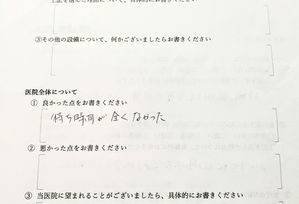 ③その他の設備について、何かございましたらお書きください
医院全体について
① 良かった点をお書きください
待ち時間が全くなかった
② 悪かった点をお書きください
③ 当医院に望まれることがございましたら、具体的にお書きください